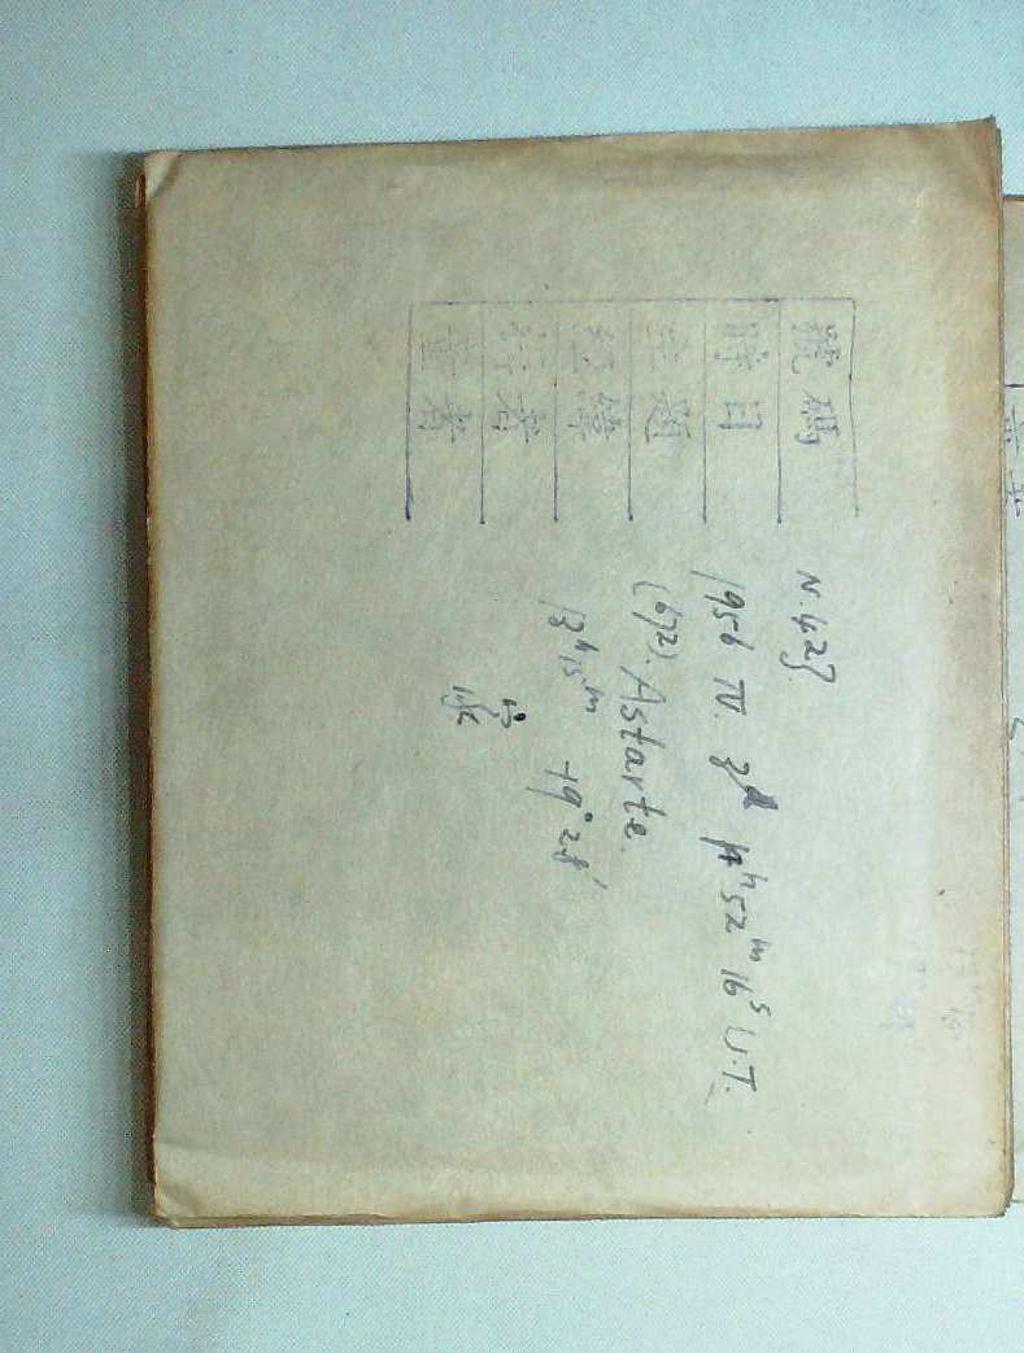 號碼 N. 423
時日 1956 IV. 3ᵈ 14ʰ52ᵐ16ˢ U.T.
主題 (672). Astarte.
經緯 13ʰ15ᵐ +9°28′